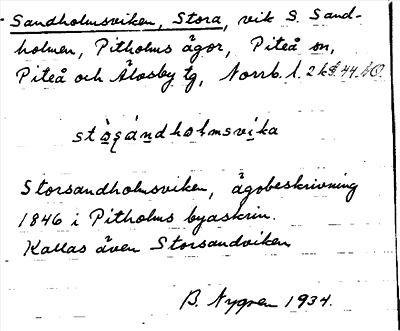 Sandholmsviken, Stora, vik S. Sand-
holmen, Pitholms ägor, Piteå sn,
Piteå och Älvsby tg, Norrb. l. 2 k 44
Storsandholmsviken, ägobeskrivning
1846 i Pitholms byaskrin.
Kallas även Storsandviken
B. Nygren 1934.